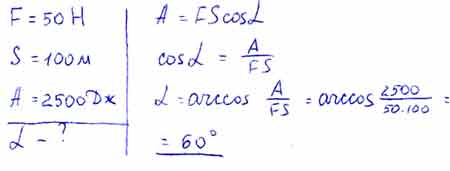 F = 50 Н
S = 100 м
A = 2500 Дж
α - ?
A = FS cos α
cos α = A/FS
α = arccos A/FS = arccos 2500/50·100 =
= 60°